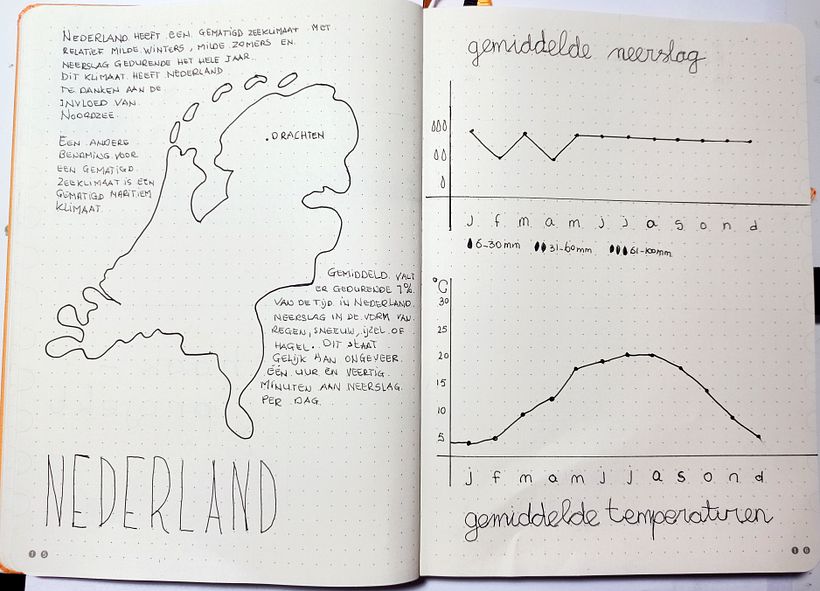 NEDERLAND HEEFT EEN GEMATIGD ZEEKLIMAAT MET
RELATIEF MILDE WINTERS, MILDE ZOMERS EN
NEERSLAG GEDURENDE HET HELE JAAR.
DIT KLIMAAT HEEFT NEDERLAND
TE DANKEN AAN DE
INVLOED VAN
NOORDZEE.
EEN ANDERE
BENAMING VOOR
EEN GEMATIGD
ZEEKLIMAAT IS EEN
GEMATIGD MARITIEM
KLIMAAT
DRACHTEN
GEMIDDELD VALT
ER GEDURENDE 7%
VAN DE TIJD IN NEDERLAND
NEERSLAG IN DE VORM VAN
REGEN, SNEEUW, IJZEL OF
HAGEL. DIT STAAT
GELIJK AAN ONGEVEER
ÉÉN UUR EN VEERTIG
MINUTEN AAN NEERSLAG
PER DAG
NEDERLAND
15
gemiddelde neerslag
j f m a m j j a s o n d
6-30mm 31-60mm 61-100mm
°C
30
25
20
15
10
5
j f m a m j j a s o n d
gemiddelde temperaturen
16